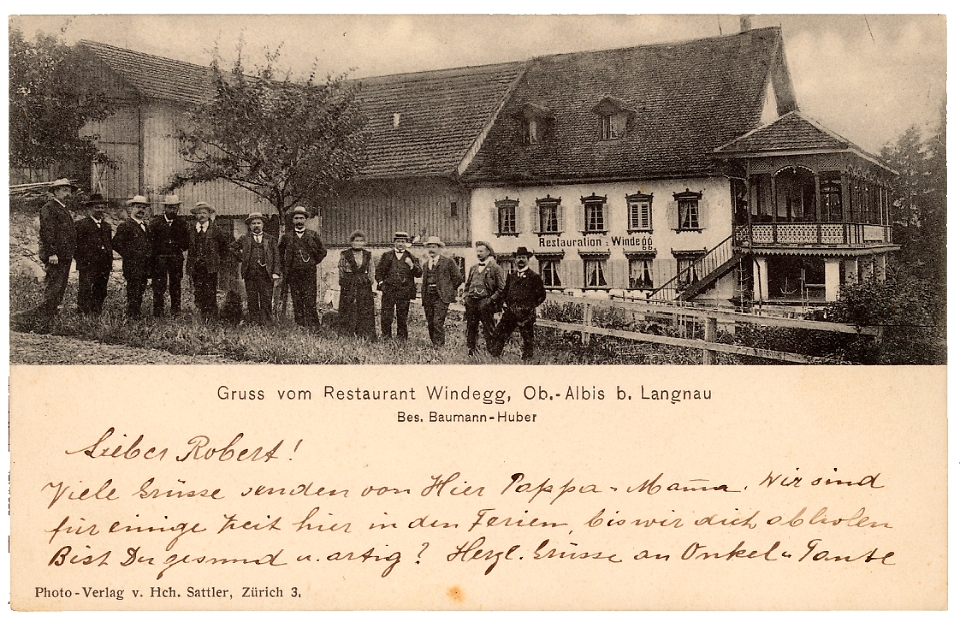 Restauration z. Windegg
Gruss vom Restaurant Windegg, Ob.-Albis b. Langnau
Bes. Baumann-Huber
Lieber Robert!
Viele Grüsse senden von Hier Pappa - Mama. Wir sind
für einige Zeit hier in den Ferien, bis wir dich abholen
Bist Du gesund u. artig? Herzl. Grüsse an Onkel u Tante
Photo-Verlag v. Hch. Sattler, Zürich 3.